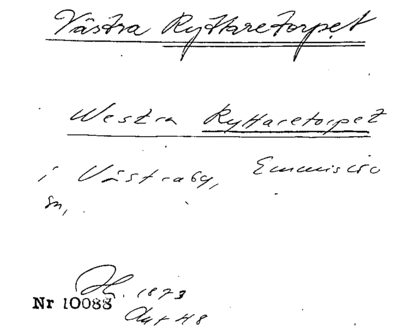 Västra Ryttaretorpet
Westra Ryttaretorpet
i Västraby, Emmislöv
sn,
1873
Nr 10088